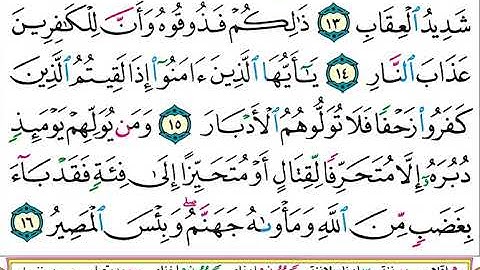 شَدِيدُ ٱلْعِقَابِ ١٣ ذَٰلِكُمْ فَذُوقُوهُ وَأَنَّ لِلْكَٰفِرِينَ
عَذَابَ ٱلنَّارِ ١٤ يَٰٓأَيُّهَا ٱلَّذِينَ ءَامَنُوٓا۟ إِذَا لَقِيتُمُ ٱلَّذِينَ
كَفَرُوا۟ زَحْفًا فَلَا تُوَلُّوهُمُ ٱلْأَدْبَارَ ١٥ وَمَن يُوَلِّهِمْ يَوْمَئِذٍ
دُبُرَهُۥٓ إِلَّا مُتَحَرِّفًا لِّقِتَالٍ أَوْ مُتَحَيِّزًا إِلَىٰ فِئَةٍ فَقَدْ بَآءَ
بِغَضَبٍ مِّنَ ٱللَّهِ وَمَأْوَىٰهُ جَهَنَّمُ ۖ وَبِئْسَ ٱلْمَصِيرُ ١٦